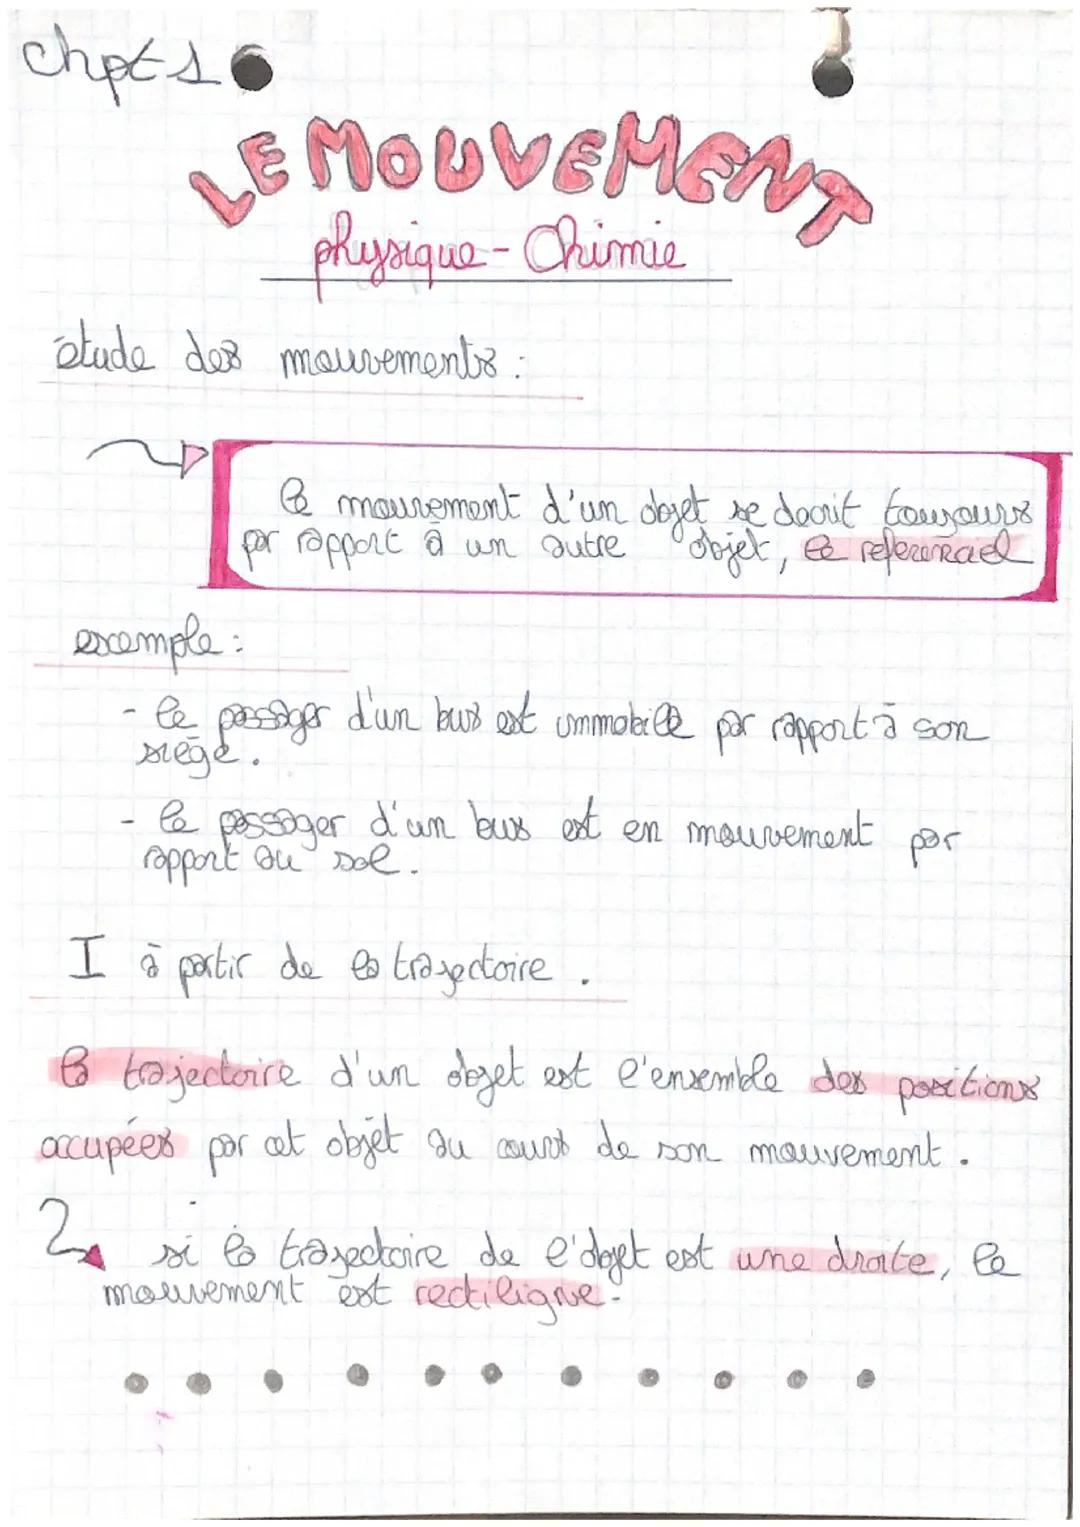 chpt 1
LE MOUVEMENT
physique - Chimie
étude des mouvements :
le mouvement d'un objet se decrit toujours
par rapport à un autre objet, le referenciel
exemple :
- le passager d'un bus est immobile par rapport à son
siège.
- le passager d'un bus est en mouvement par
rapport au sol.
I à partir de la trajectoire.
la trajectoire d'un objet est l'ensemble des positions
occupées par cet objet au cours de son mouvement.
si la trajectoire de l'objet est une droite, le
mouvement est rectiligne.